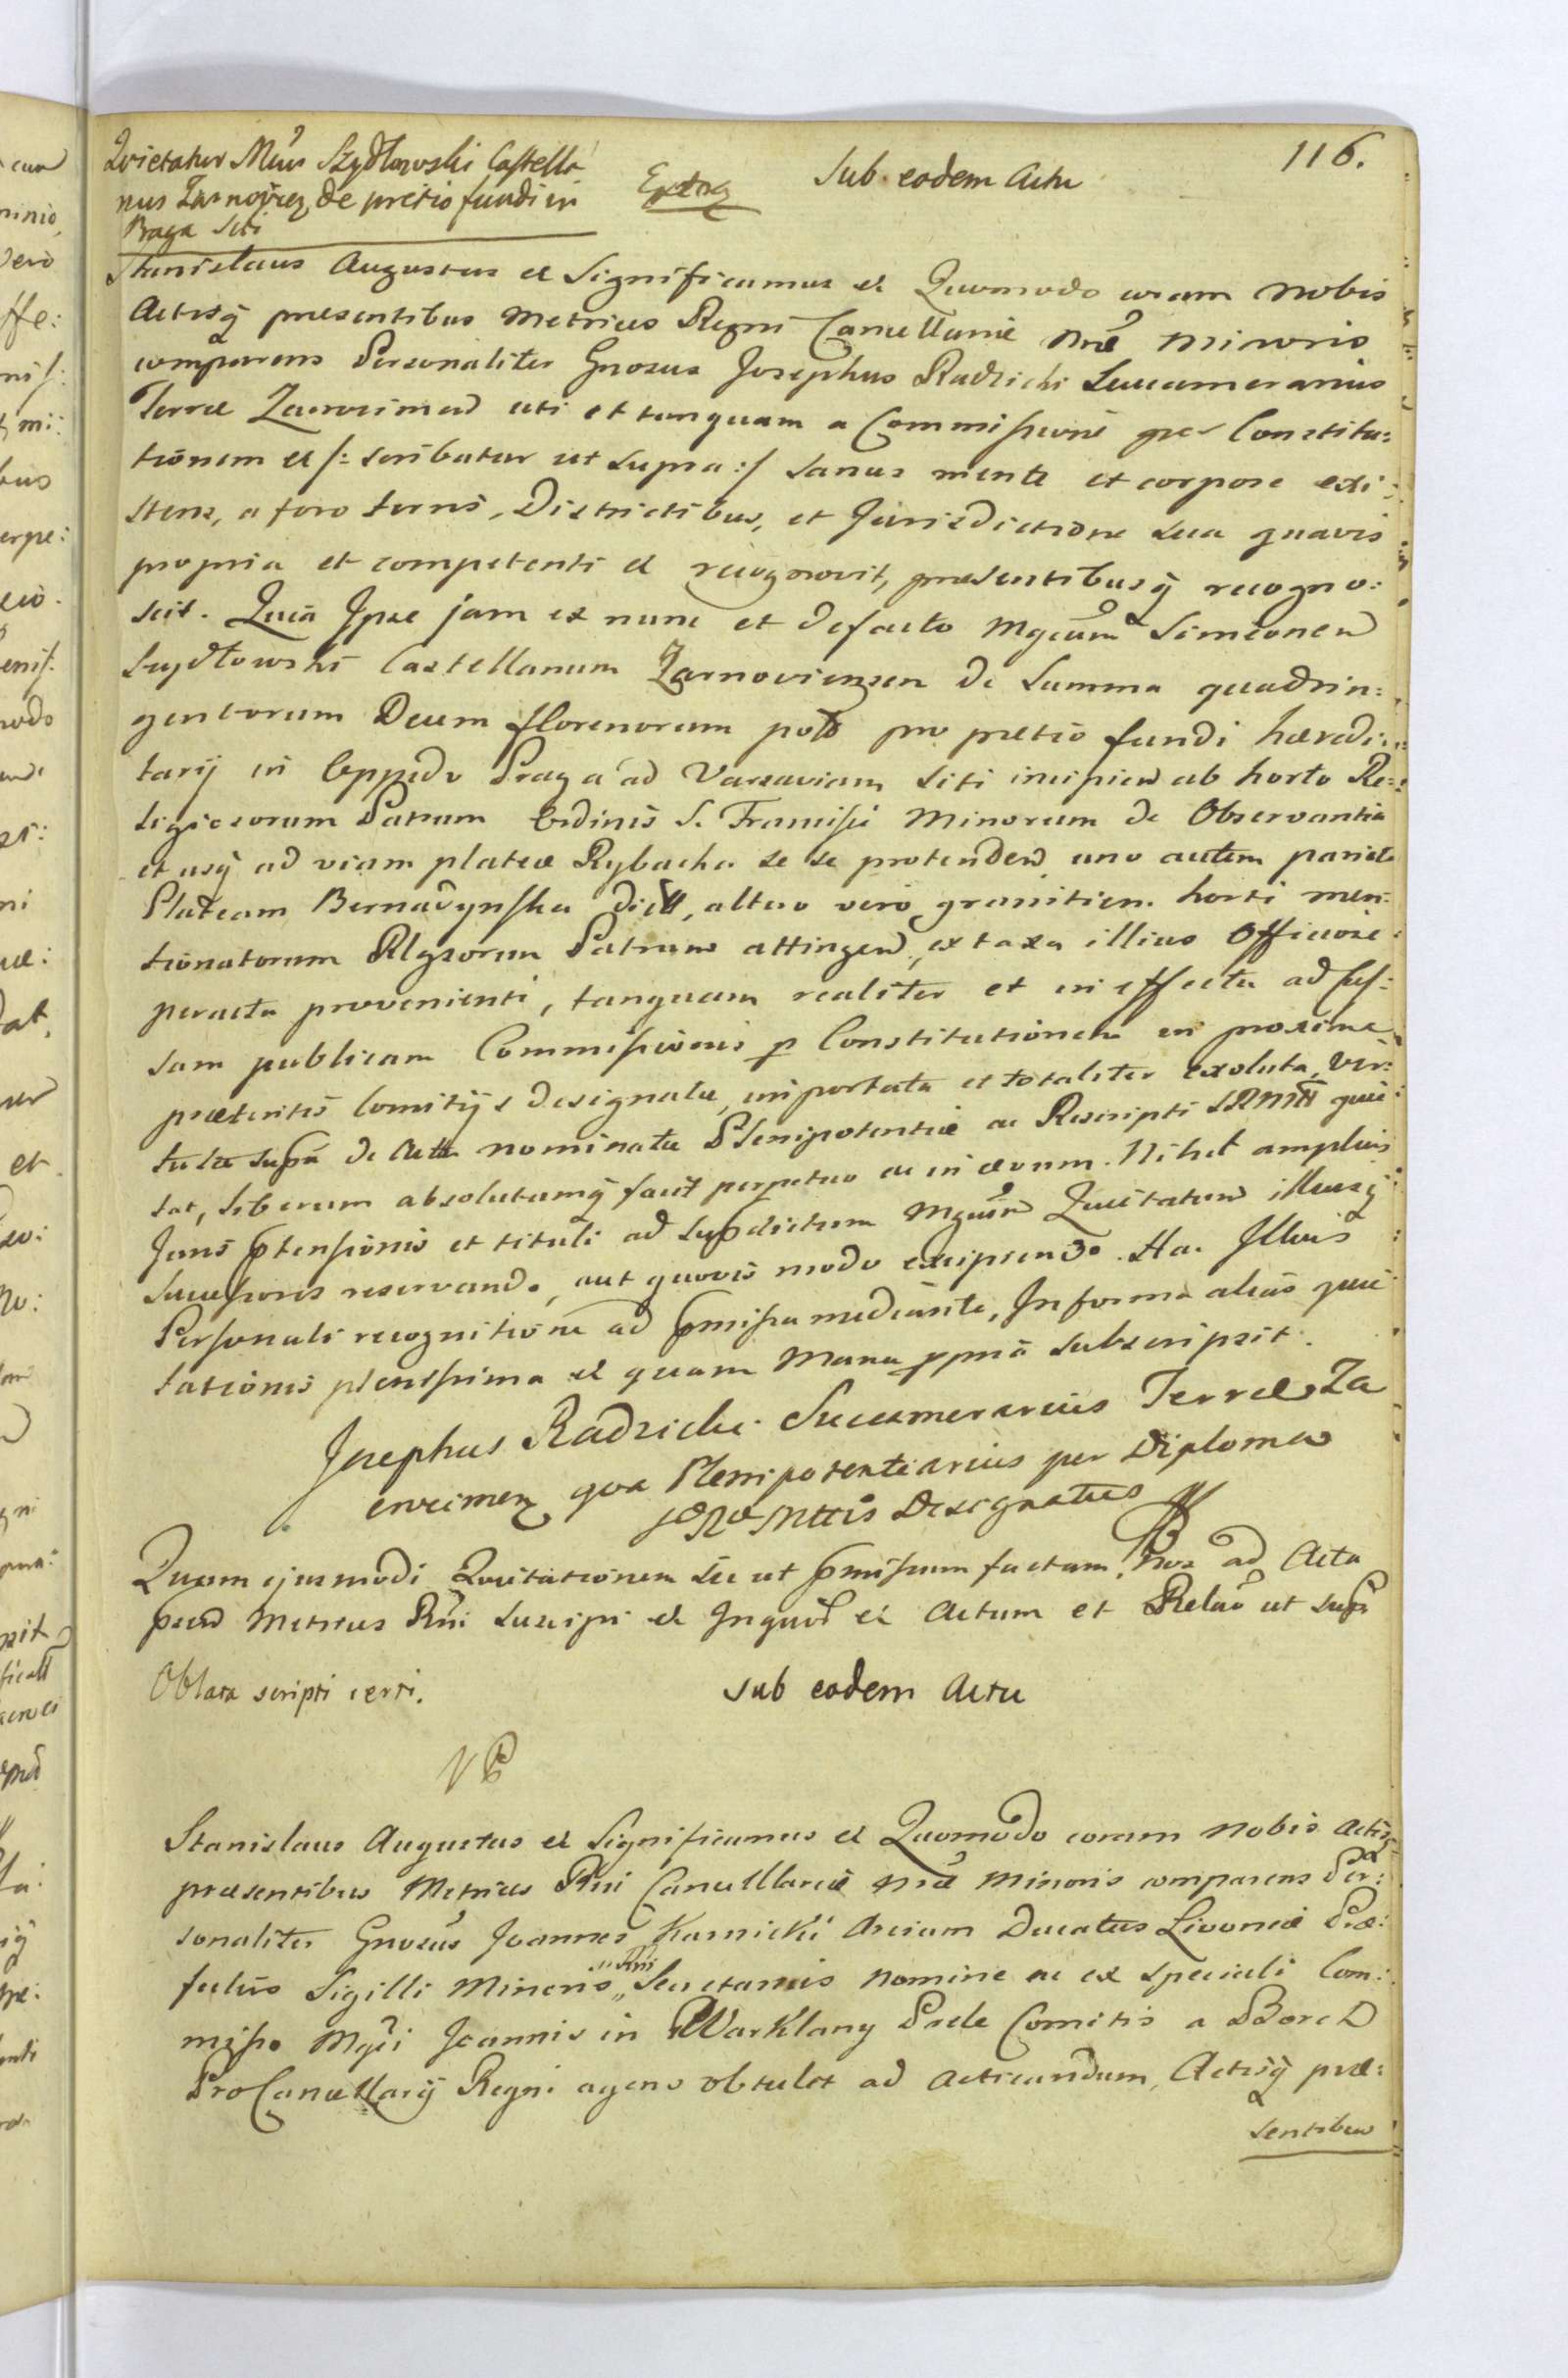 116.
Quietatur Mcus Szydłowski Castella
nus Żarnovien de pretio fundi in
Praga siti
Extrag
Sub eodem Actu
Stanislaus Augustus et Significamus et Quomodo coram Nobis
Actisq presentibus Metrices Regni Cancellariae Nrae Minoris
comparens Personaliter Gnosus Josephus Radzicki Succamerarius
Terrae Zacrocimen uti et tanquam a Commissione per Constitu:
tionem et /: scribatur ut supra :/ sanus mente et corpore exi:
stens, a foro terris, Districtibus, et Jurisdictione sua quavis
propria et competenti et recognovit, praesentibusq recogno:
scit. Quia Ipse jam ex nunc et de facto Mgcum Simeonem
Szydłowski Castellanum Żarnoviensem de Summa quadrin:
gentorum Decem florenorum poło pro pretio fundi haeredi:
tarij in Oppido Praga ad Varsaviam siti incipien ab horto Re:
ligiosorum Patrum Ordinis S. Francisci Minorum de Observantia
et usq ad viam plateae Rybacka se se protenden uno autem pariete
Plateam Bernadynska dictt, altero vero granitiem horti men:
tionatorum Rlgsorum Patrum attingen, ex taxa illius Officiose
peracta provenienti, tanquam realiter et in effectu ad cas:
sam publicam Commissionis p Constitutionem in proxime
praeteritis Comitijs designatae, importata et totaliter exoluta, vir:
tute supra de Actu nominatae Plenipotentiae ac Rescripti SRMtti quie
tat, liberum absolutumq facit perpetuo ac in aevum. Nihil amplius
Juris ptensionis et tituli ad supdictum Mgcum Quietatum illiusq
Successores reservando, aut quovis modo excipiendo. Hac Illius
Personali recognitione ad pmissa mediante, In forma alias quie
tationis plenissima et quam Manu ppria subscripsit.
Josephus Radzicki Succamerarius Terrae Za
crocimen qua Plenipotentiarius per Diploma
SaeRae Mttis Designatus
Quam ejusmodi Quietationem sic ut pmissum factam Nos ad Acta
psen Metrices Rni suscipi et Inquor et Actum et Relao ut supra
Oblata scripti certi.
Sub eodem Actu
Stanislaus Augustus et Significamus et Quomodo coram Nobis Actisq
praesentibus Metrices Rni Cancellariae Nrae Minoris comparens Per:
sonaliter Gnosus Joannes Karnicki Arcium Ducatus Livoniae Prae:
fectus Sigilli Minoris Rni Secretarius nomine ac ex speciali Com:
misso Mgci Joannis in Warklany Prele Comitis a Borch
ProCancellarij Regni agens obtulit ad acticandum, Actisq prae:
sentibus